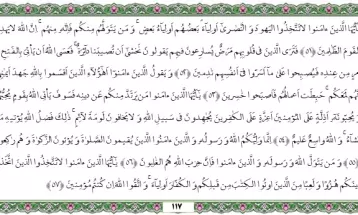 يَٰٓأَيُّهَا الَّذِينَ ءَامَنُوا لَا تَتَّخِذُوا الْيَهُودَ وَالنَّصَٰرَىٰٓ أَوْلِيَآءَ بَعْضُهُمْ أَوْلِيَآءُ بَعْضٍ وَمَن يَتَوَلَّهُم مِّنكُمْ فَإِنَّهُ مِنْهُمْ إِنَّ اللَّهَ لَا يَهْدِي
الْقَوْمَ الظَّٰلِمِينَ ﴿٥١﴾ فَتَرَى الَّذِينَ فِي قُلُوبِهِم مَّرَضٌ يُسَٰرِعُونَ فِيهِمْ يَقُولُونَ نَخْشَىٰٓ أَن تُصِيبَنَا دَآئِرَةٌ فَعَسَى اللَّهُ أَن يَأْتِيَ بِالْفَتْحِ
مِّنْ عِندِهِ فَيُصْبِحُوا عَلَىٰ مَآ أَسَرُّوا فِيٓ أَنفُسِهِمْ نَٰدِمِينَ ﴿٥٢﴾ وَيَقُولُ الَّذِينَ ءَامَنُوٓا أَهَٰٓؤُلَآءِ الَّذِينَ أَقْسَمُوا بِاللَّهِ جَهْدَ
لَمَعَكُمْ حَبِطَتْ أَعْمَٰلُهُمْ فَأَصْبَحُوا خَٰسِرِينَ ﴿٥٣﴾ يَٰٓأَيُّهَا الَّذِينَ ءَامَنُوا مَن يَرْتَدَّ مِنكُمْ عَن دِينِهِ فَسَوْفَ يَأْتِي اللَّهُ بِقَوْمٍ يُحِبُّهُمْ
وَيُحِبُّونَهُ أَذِلَّةٍ عَلَى الْمُؤْمِنِينَ أَعِزَّةٍ عَلَى الْكَٰفِرِينَ يُجَٰهِدُونَ فِي سَبِيلِ اللَّهِ وَلَا يَخَافُونَ لَوْمَةَ لَآئِمٍ ذَٰلِكَ فَضْلُ اللَّهِ يُؤْتِيهِ مَن
يَشَآءُ وَاللَّهُ وَٰسِعٌ عَلِيمٌ ﴿٥٤﴾ إِنَّمَا وَلِيُّكُمُ اللَّهُ وَرَسُولُهُ وَالَّذِينَ ءَامَنُوا الَّذِينَ يُقِيمُونَ الصَّلَوٰةَ وَيُؤْتُونَ الزَّكَوٰةَ وَهُمْ رَٰكِعُونَ
﴿٥٥﴾ وَمَن يَتَوَلَّ اللَّهَ وَرَسُولَهُ وَالَّذِينَ ءَامَنُوا فَإِنَّ حِزْبَ اللَّهِ هُمُ الْغَٰلِبُونَ ﴿٥٦﴾ يَٰٓأَيُّهَا الَّذِينَ ءَامَنُوا لَا تَتَّخِذُوا الَّذِينَ اتَّخَذُوا
دِينَكُمْ هُزُوًا وَلَعِبًا مِّنَ الَّذِينَ أُوتُوا الْكِتَٰبَ مِن قَبْلِكُمْ وَالْكُفَّارَ أَوْلِيَآءَ وَاتَّقُوا اللَّهَ إِن كُنتُم مُّؤْمِنِينَ ﴿٥٧﴾
١١٧